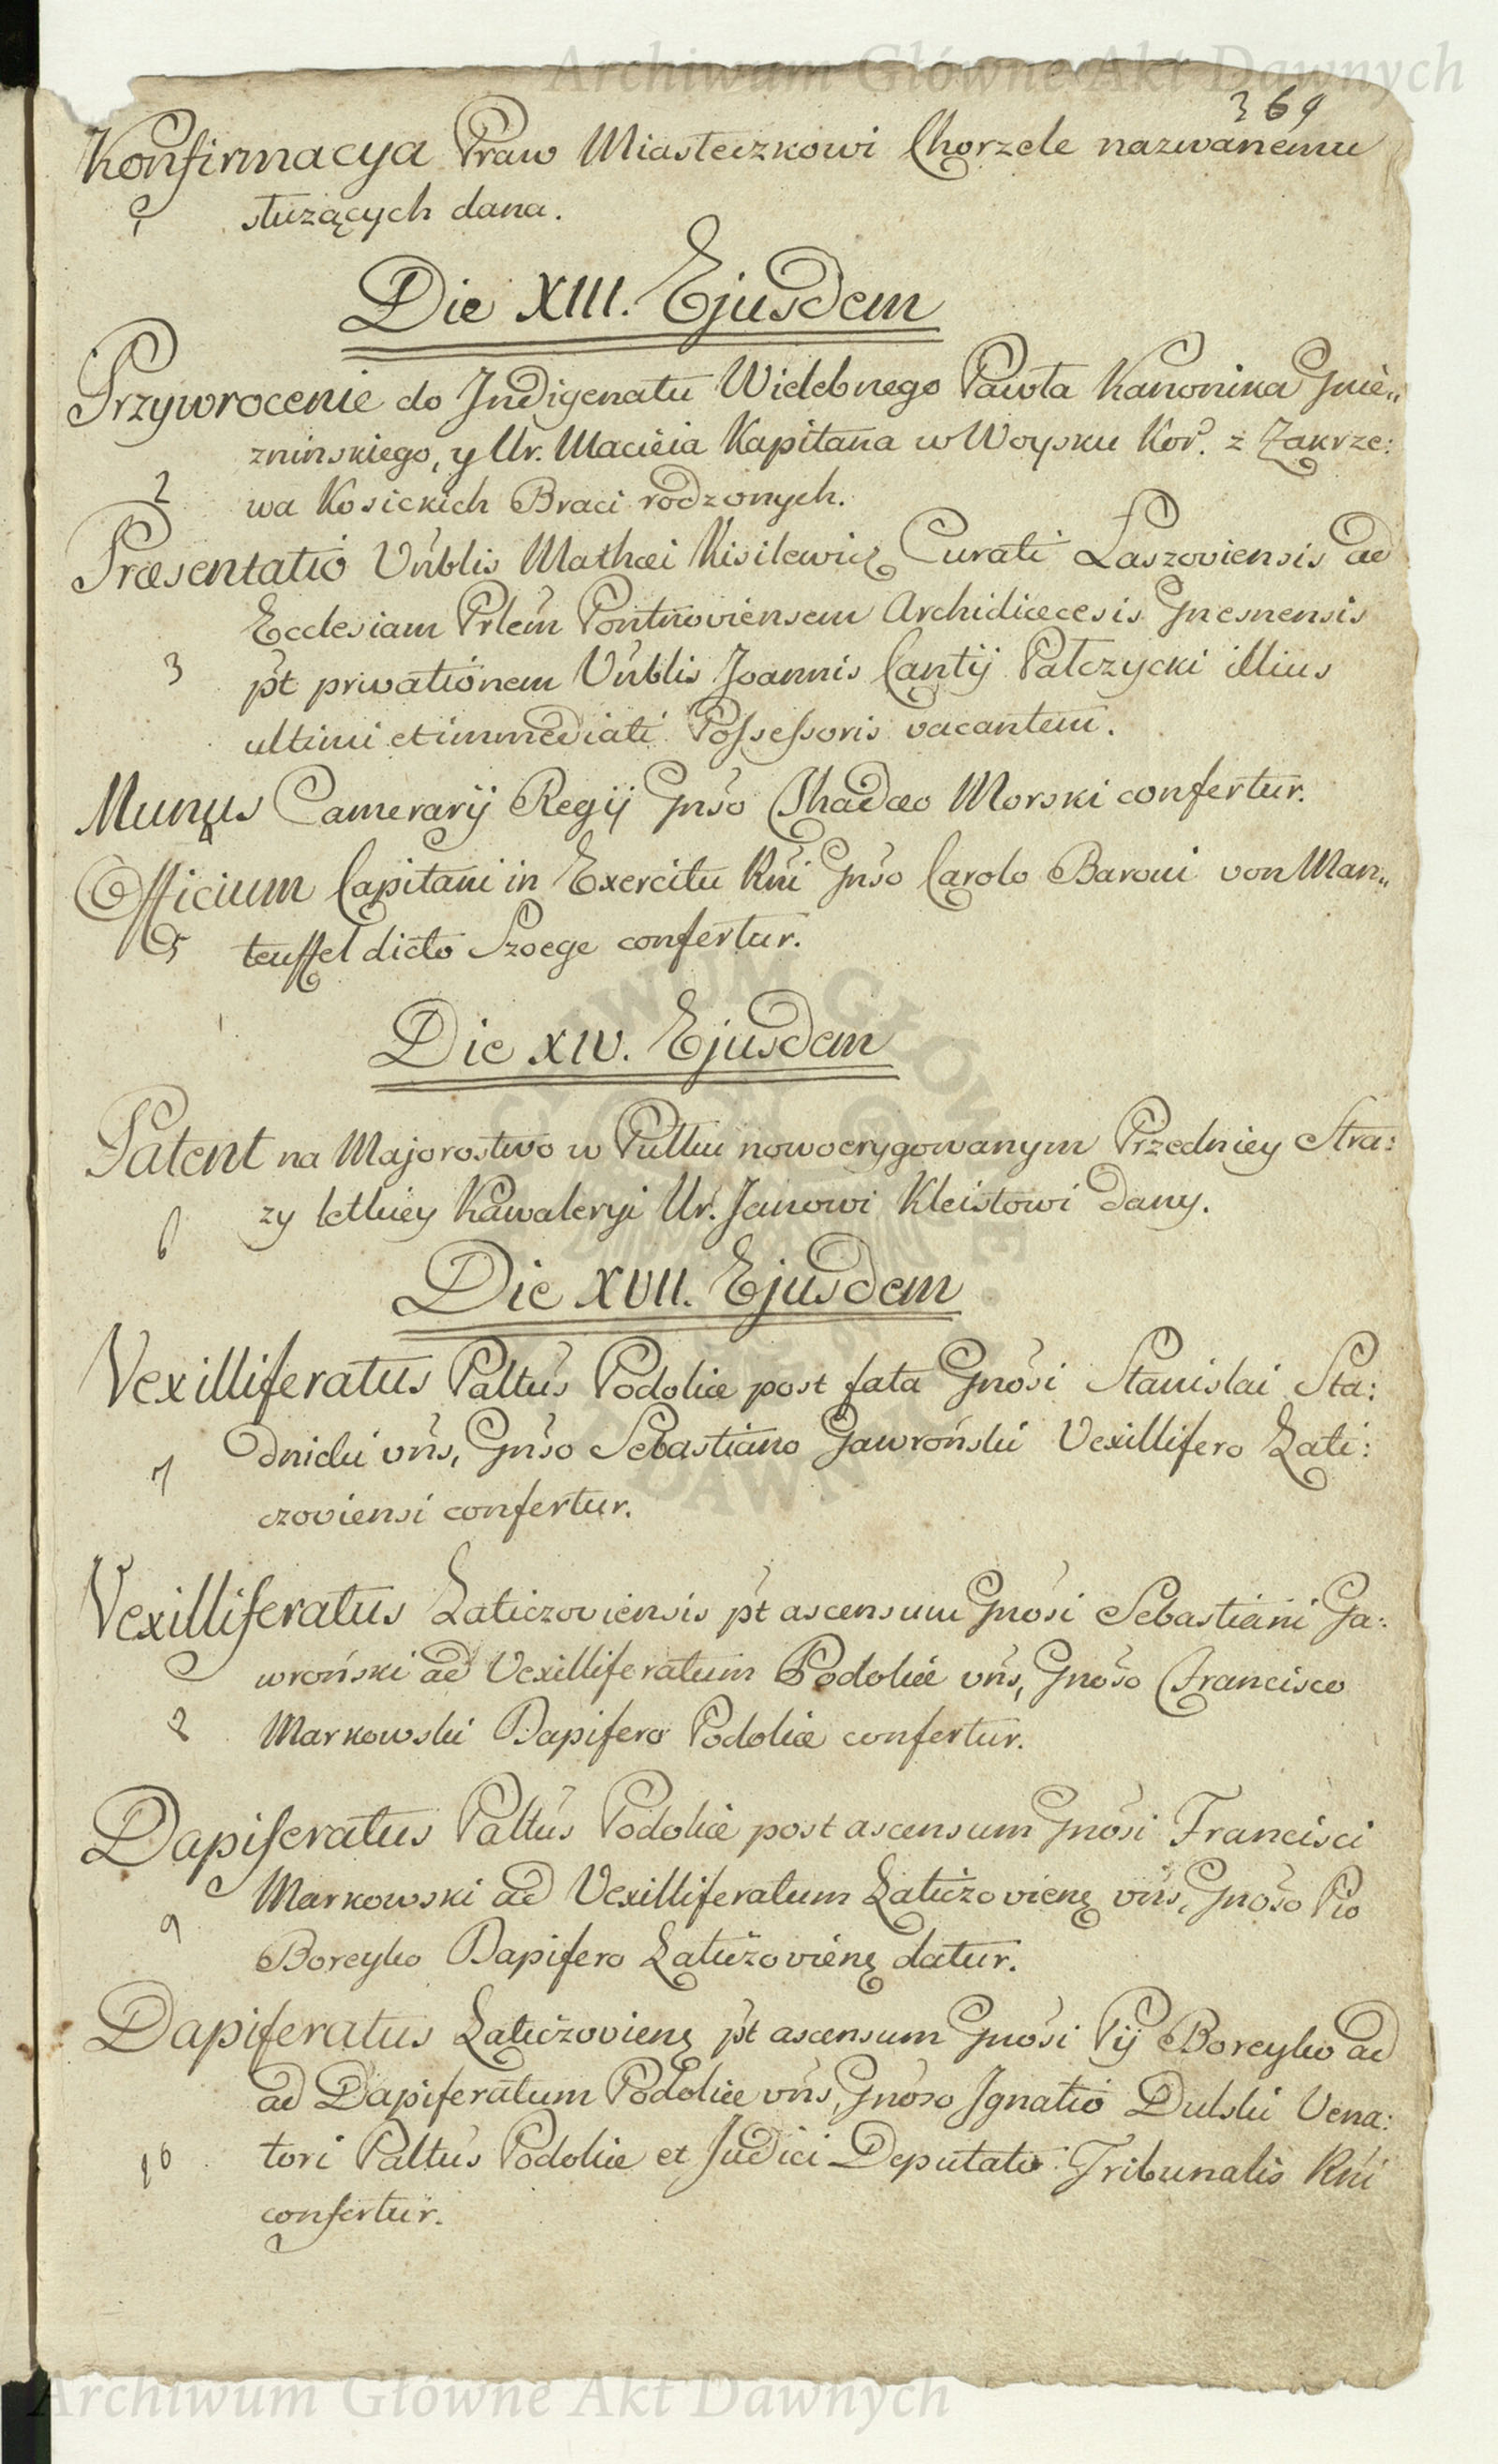 Archiwum Główne Akt Dawnych
369
Konfirmacya Praw Miasteczkowi Chorzele nazwanemu
1 służących dana.
Die XIII. Ejusdem
Przywrocenie do Indigenatu Wielebnego Pawła Kanonika Gnie„
zninskiego, y Ur. Macieia Kapitana w Woysku Kor. z Zakrze:
2 wa Kosickich Braci rodzonych.
Præsentatio Vnblis Mathæi Kisilewicz Curati Laszoviensis ad
Ecclesiam Prlem Pontnoviensem Archidiæcesis Gnesnensis
3 pt privationem Vnblis Joannis Cantij Pałczycki illius
ultimi et immediati Possessoris vacantem.
Munus Camerarij Regij Gnso Thadæo Morski confertur.
4
Officium Capitani in Exercitu Rni Gnso Carolo Baroni von Man„
5 teuffel dicto Szoege confertur.
Die XIV. Ejusdem
Patent na Majorostwo w Pułku nowoerygowanym Przedniey Stra:
6 zy letkiey Kawaleryi Ur. Janowi Kleistowi dany.
Die XVII. Ejusdem
Vexilliferatus Paltus Podoliæ post fata Gnosi Stanislai Sta:
7 dnicki vns, Gnso Sebastiano Gawroński Vexillifero Lati:
czoviensi confertur.
Vexilliferatus Laticzoviensis pt ascensum Gnosi Sebastiani Ga:
wroński ad Vexilliferatum Podoliæ vns, Gnoso Francisco
8 Markowski Dapifero Podoliæ confertur.
Dapiferatus Paltus Podoliæ post ascensum Gnosi Francisci
Markowski ad Vexilliferatum Laticzovieng vns, Gnoso Pio
9 Boreyko Dapifero Laticzovieng datur.
Dapiferatus Laticzovieng pt ascensum Gnosi Pij Boreyko ad
ad Dapiferatum Podoliæ vns, Gnoso Ignatio Dulski Vena:
10 tori Paltus Podoliæ et Judici Deputato Tribunalis Rni
confertur.
Archiwum Główne Akt Dawnych